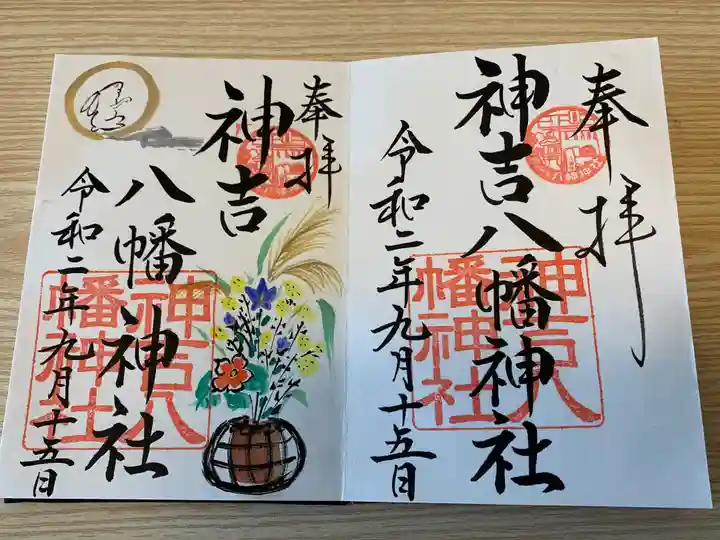 奉拝
神吉八幡神社
令和二年九月十五日
奉拝
神吉
八幡神社
令和二年九月十五日
神吉八
幡神社
神吉八
幡神社